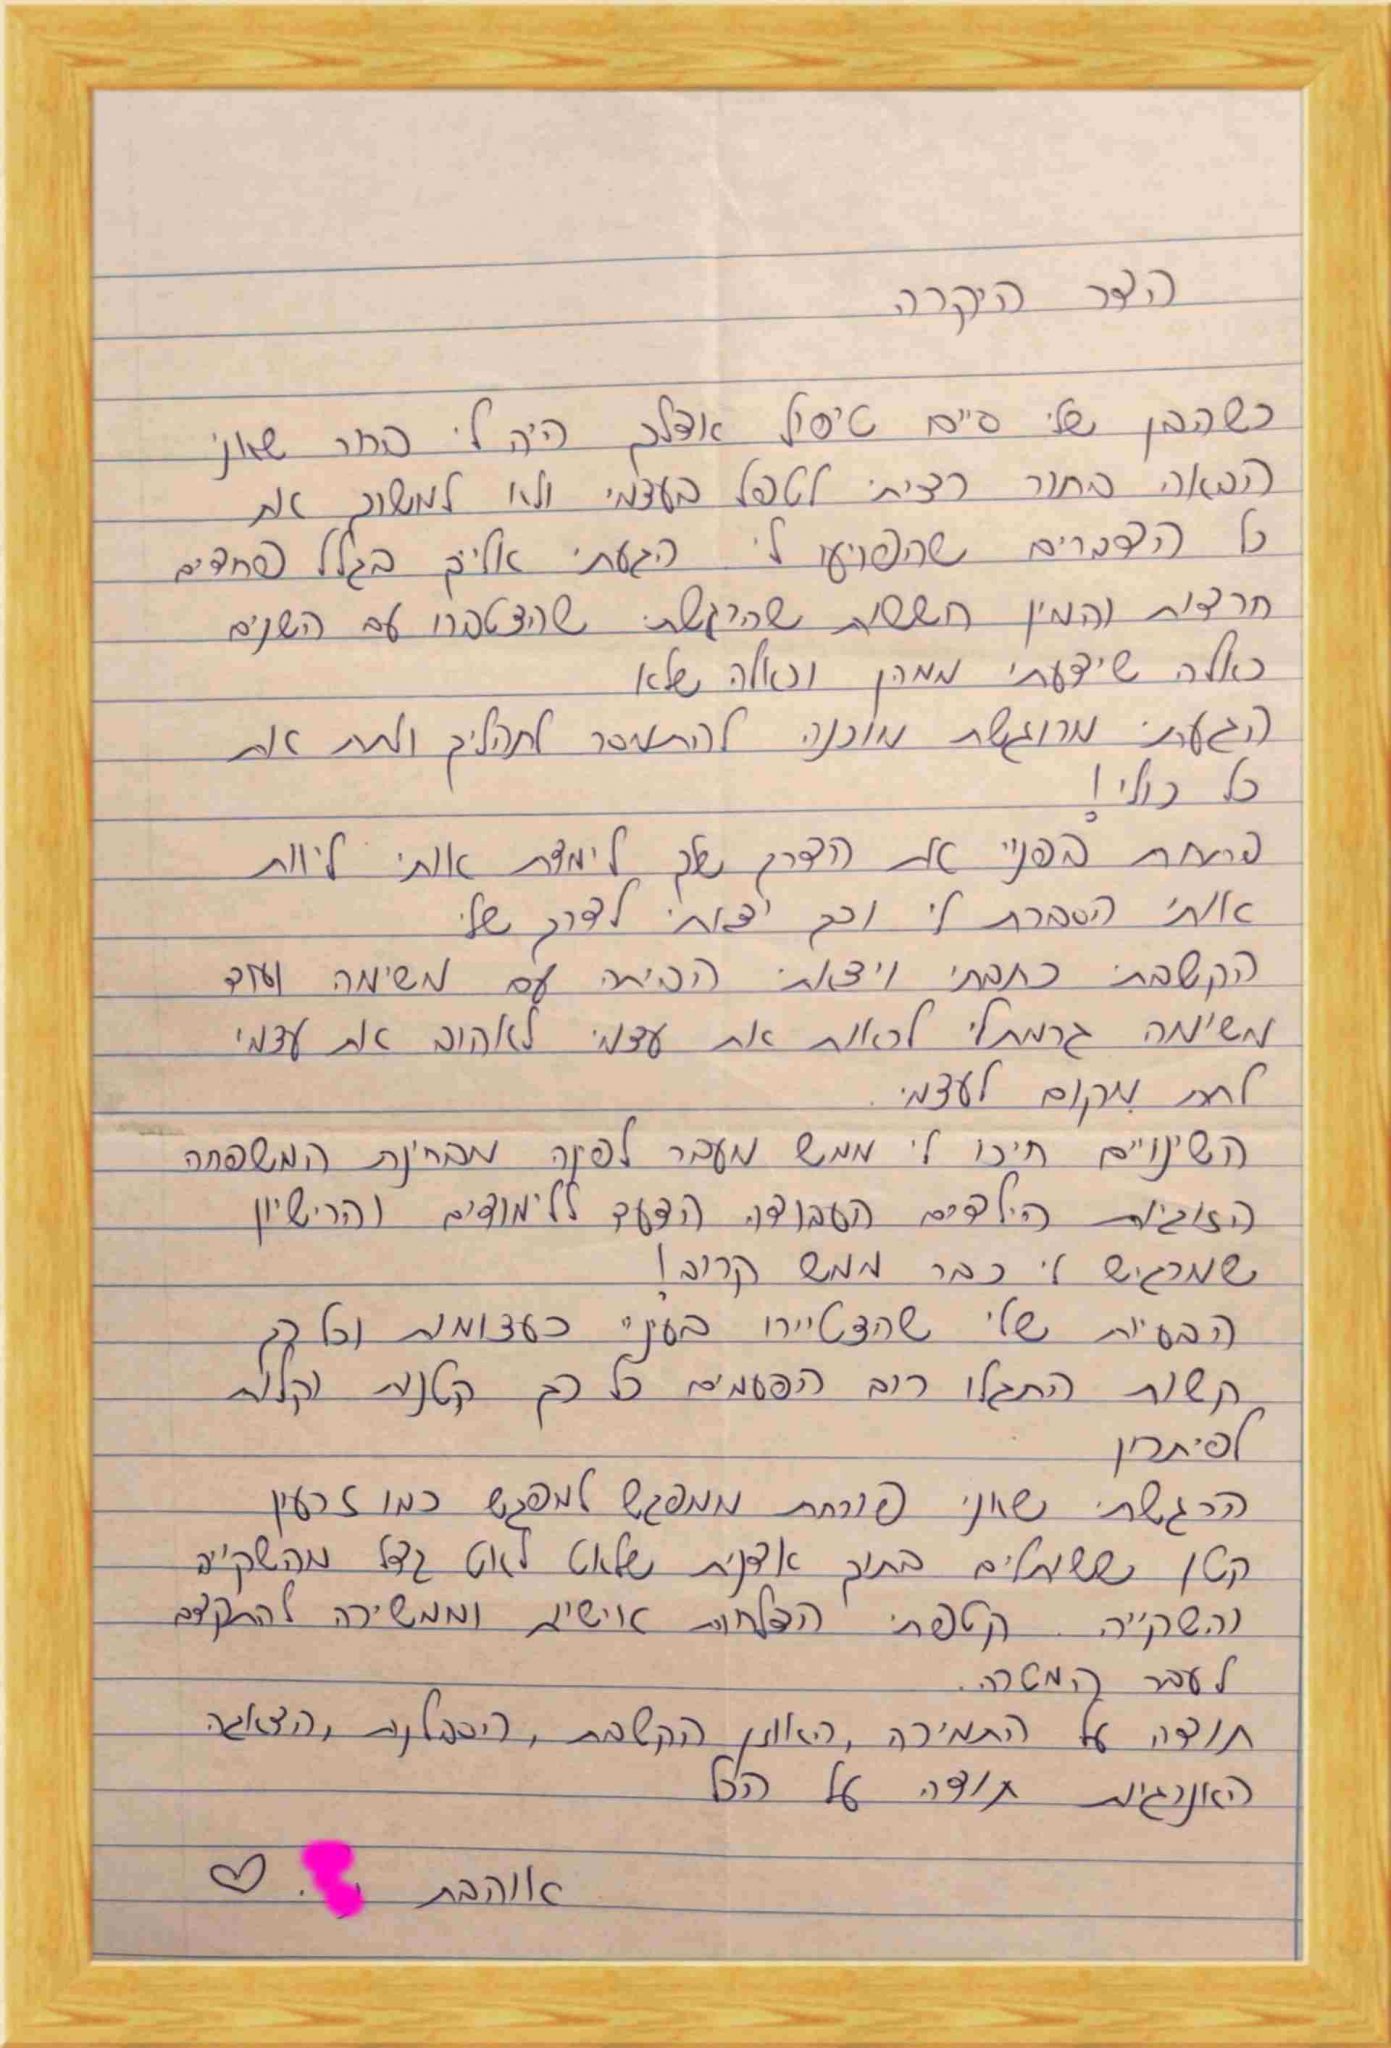 הדר היקרה
כשהבן שלי סיים טיפול אצלך היה לי ברור שאני
הבאה בתור רציתי לטפל בעצמי ולא למשוך את
כל הדברים שהפריעו לי. הגעתי אלייך בגלל פחדים
חרדות והמון חששות שהרגשתי שהצטברו עם השנים
כאלה שידעתי מהן וכאלה שלא
הגעתי מרוגשת מוכנה להתמסר לתהליך ולתת את
כל כולי!
פתחת בפניי את הדרך שלך לימדת אותי ליווית
אותי הסברת לי וכך יצאתי לדרך שלי
הקשבתי כתבתי ויצאתי הביתה עם משימה ועוד
משימה גרמת לי לראות את עצמי לאהוב את עצמי
לתת מקום לעצמי.
השינויים חיכו לי ממש מעבר לפינה מבחינת המשפחה
הזוגיות הילדים העבודה הצעד ללימודים והרישיון
שמרגיש לי כבר ממש קרוב!
הבעיות שלי שהצטיירו בעיניי כעצומות וכל כך
קשות התגלו רוב הפעמים כל כך קטנות וקלות
לפיתרון
הרגשתי שאני פורחת ממפגש למפגש כמו זרעון
קטן ששותלים בתוך אדנית שלאט לאט גדל מהשקייה
והשקייה. קטפתי הצלחות אישיות וממשיכה להתקדם
לעבר המטרה.
תודה על התמיכה, האוזן הקשבת, הסבלנות, הדאגה
האנרגיות תודה על הכל
אוהבת